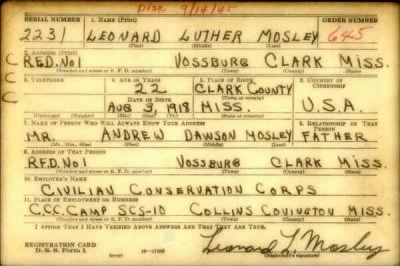 Disc 9/14/45
SERIAL NUMBER 1. NAME (Print) ORDER NUMBER
2231 LEONARD LUTHER MOSLEY 645
(First) (Middle) (Last)
2. ADDRESS (Print)
R.F.D. No 1 VOSSBURG CLARK MISS.
(Number and street or R. F. D. number) (Town) (County) (State)
3. TELEPHONE 4. AGE IN YEARS 5. PLACE OF BIRTH 6. COUNTRY OF CITIZENSHIP
22 CLARK COUNTY
DATE OF BIRTH (Town or county)
AUG 3, 1918 MISS. U.S.A.
(Exchange) (Number) (Mo.) (Day) (Yr.) (State or country)
7. NAME OF PERSON WHO WILL ALWAYS KNOW YOUR ADDRESS 8. RELATIONSHIP OF THAT PERSON
MR. ANDREW DAWSON MOSLEY FATHER
(Mr., Mrs., Miss) (First) (Middle) (Last)
9. ADDRESS OF THAT PERSON
R.F.D. No 1 VOSSBURG CLARK MISS.
(Number and street or R. F. D. number) (Town) (County) (State)
10. EMPLOYER'S NAME
CIVILIAN CONSERVATION CORPS
11. PLACE OF EMPLOYMENT OR BUSINESS
CCC CAMP SCS-10 COLLINS COVINGTON MISS.
(Number and street or R. F. D. number) (Town) (County) (State)
I AFFIRM THAT I HAVE VERIFIED ABOVE ANSWERS AND THAT THEY ARE TRUE.
REGISTRATION CARD
D. S. S. Form 1 Leonard L Mosley
(Registrant's signature)
C
C
C